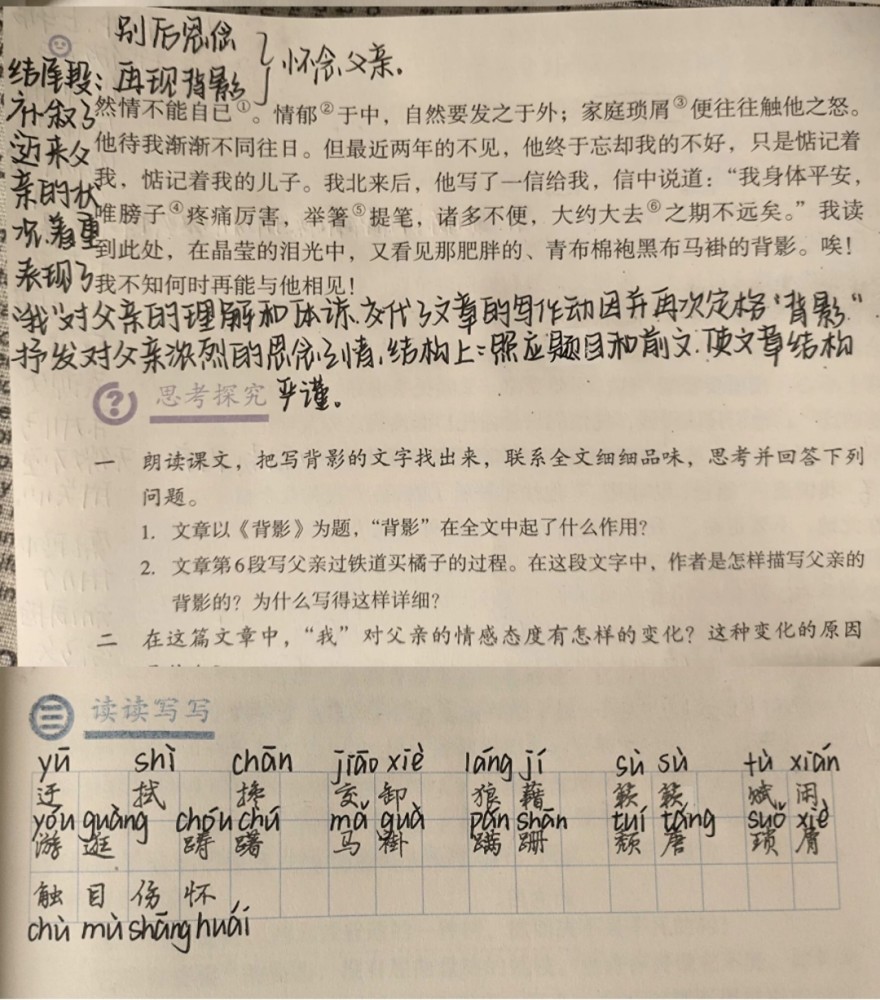 别后思念
再现背影
怀念父亲。
结尾段：
补叙了
近来父
亲的状
况，着重
表现了
然情不能自已①。情郁②于中，自然要发之于外；家庭琐屑③便往往触他之怒。
他待我渐渐不同往日。但最近两年的不见，他终于忘却我的不好，只是惦记着
我，惦记着我的儿子。我北来后，他写了一信给我，信中说道：“我身体平安，
唯膀子④疼痛厉害，举箸⑤提笔，诸多不便，大约大去⑥之期不远矣。”我读
到此处，在晶莹的泪光中，又看见那肥胖的、青布棉袍黑布马褂的背影。唉！
我不知何时再能与他相见！
“我”对父亲的理解和体谅.交代了文章的写作动因并再次定格“背影”
抒发对父亲浓烈的思念之情，结构上：照应题目和前文.使文章结构
严谨。
思考探究
一 朗读课文，把写背影的文字找出来，联系全文细细品味，思考并回答下列
问题。
1. 文章以《背影》为题，“背影”在全文中起了什么作用？
2. 文章第6段写父亲过铁道买橘子的过程。在这段文字中，作者是怎样描写父亲的
背影的？为什么写得这样详细？
二 在这篇文章中，“我”对父亲的情感态度有怎样的变化？这种变化的原因
读读写写
yū shì chān jiāo xiè láng jí sù sù fù xián
迂 拭 搀 交卸 狼藉 簌簌 赋闲
yóu guàng chóu chú mǎ guà pán shān tuí táng suǒ xiè
游逛 踌躇 马褂 蹒跚 颓唐 琐屑
触目伤怀
chù mù shāng huái